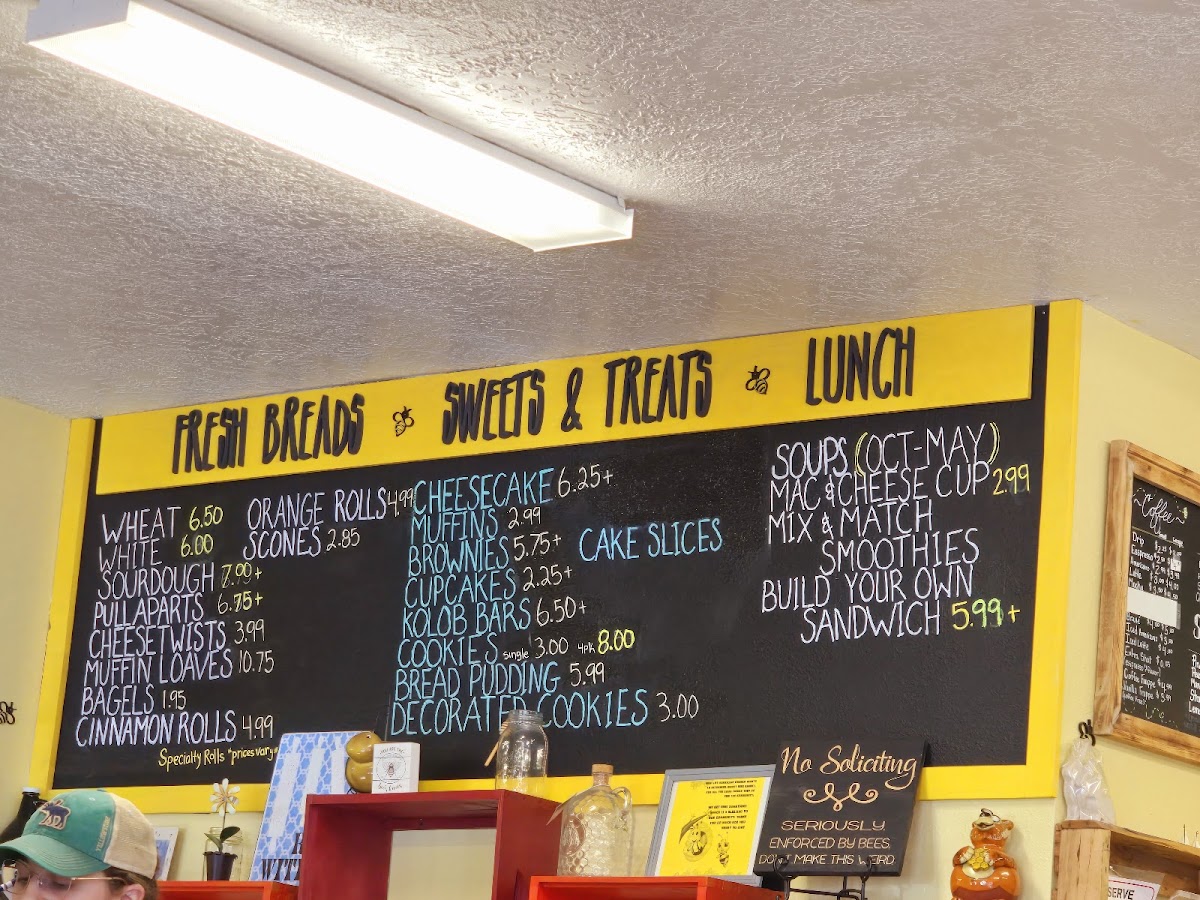 FRESH BREADS SWEETS & TREATS LUNCH
WHEAT 6.50
WHITE 6.00
SOURDOUGH 7.99+
PULLAPARTS 6.75+
CHEESE TWISTS 3.99
MUFFIN LOAVES 10.75
BAGELS 1.95
CINNAMON ROLLS 4.99
Specialty Rolls *prices vary*
ORANGE ROLLS 4.99
SCONES 2.85
CHEESECAKE 6.25+
MUFFINS 2.99
BROWNIES 5.75+
CUPCAKES 2.25+
KOLOB BARS 6.50+
COOKIES single 3.00 4pk 8.00
BREAD PUDDING 5.99
DECORATED COOKIES 3.00
CAKE SLICES
SOUPS (OCT-MAY)
MAC & CHEESE CUP 2.99
MIX & MATCH
SMOOTHIES
BUILD YOUR OWN
SANDWICH 5.99+
Coffee
Drip
Espresso
Americano
Latte
Mocha
Iced Americano
Iced Latte
Extra Shot
Coffee Frappe
Vanilla Frappe
No Soliciting
SERIOUSLY.
ENFORCED BY BEES.
DON'T MAKE THIS WEIRD.
SERVE